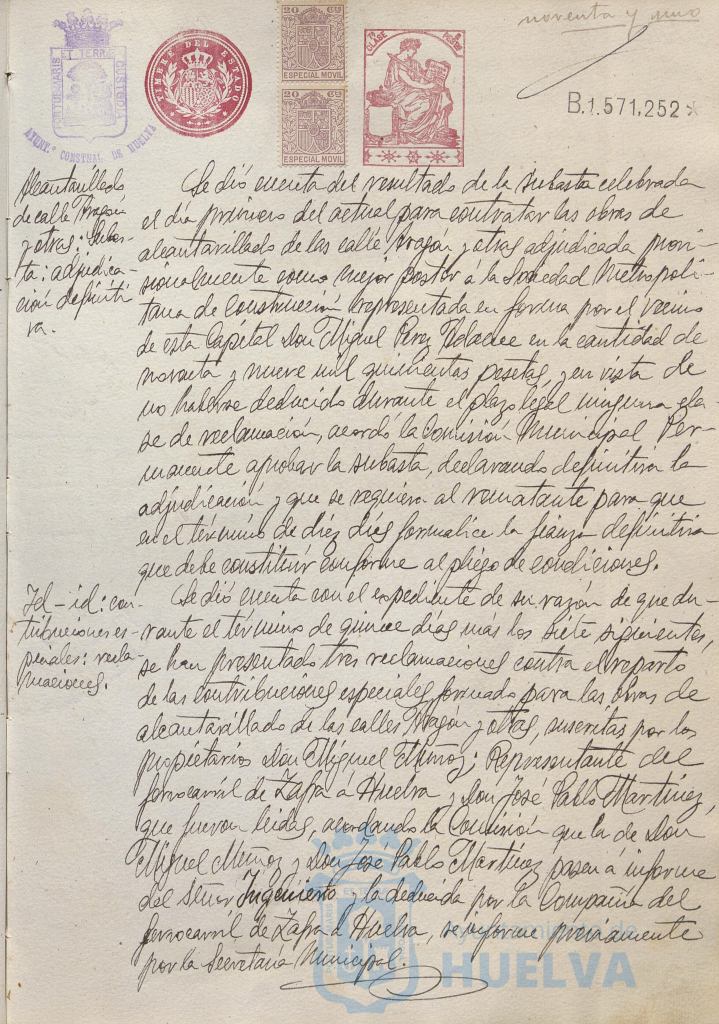 noventa y uno
PORTUS MARIS ET TERRE CUSTODIA
AYUNT.º CONSTNAL. DE HUELVA
TIMBRE DEL ESTADO
20 Cs
ESPECIAL MOVIL
20 Cs
ESPECIAL MOVIL
CLASE
PESETAS
B.1.571,252*
Alcantarillado
de calle Aragón
y otras: Subas-
ta: adjudica-
ción definiti-
va.
Se dió cuenta del resultado de la subasta celebrada
el día primero del actual para contratar las obras de
alcantarillado de las calle Aragón y otras adjudicada provi-
sionalmente como mejor postor a la Sociedad Metropoli-
tana de Construcción representada en forma por el vecino
de esta Capital Don Miguel Perez en la cantidad de
noventa y nueve mil quinientas pesetas, y en vista de
no haberse deducido durante el plazo legal ninguna cla-
se de reclamación, acordó la Comisión Municipal Per-
manente aprobar la subasta, declarando definitiva la
adjudicación y que se requiera al rematante para que
en el término de diez días formalice la fianza definitiva
que debe constituir conforme al pliego de condiciones.
Id - id: con-
tribuciones es-
peciales: recla-
maciones.
Se dió cuenta con el expediente de su razón de que du-
rante el término de quince días más los siete siguientes,
se han presentado tres reclamaciones contra el reparto
de las contribuciones especiales formado para las obras de
alcantarillado de las calles Aragón y otras, suscritas por los
propietarios Don Miguel Muñoz; Representante del
ferrocarril de Zafra á Huelva y Don José Pablo Martínez,
que fueron leidas, acordando la Comisión que la de Don
Miguel Muñoz y Don José Pablo Martínez pasen á informe
del Señor Ingeniero y la deducida por la Compañía del
ferrocarril de Zafra á Huelva, se informe previamente
por la Secretaria Municipal.
Ayuntamiento de
HUELVA